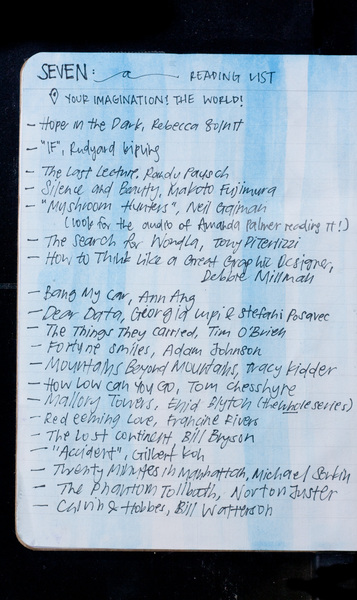 SEVEN: a READING LIST
YOUR IMAGINATION! THE WORLD!
- Hope in the Dark, Rebecca Solnit
- "IF", Rudyard Kipling
- The Last Lecture, Randy Pausch
- Silence and Beauty, Makoto Fujimura
- "Mushroom Hunters", Neil Gaiman
(look for the audio of Amanda Palmer reading it!)
- The Search for Wondla, Tony Diterlizzi
- How to Think Like a Great Graphic Designer,
Debbie Millman
- Bang My Car, Ann Ang
- Dear Data, Georgia Lupi & Stefani Posavec
- The Things They Carried, Tim O'Brien
- Fortune Smiles, Adam Johnson
- Mountains Beyond Mountains, Tracy Kidder
- How Low Can You Go, Tom Chesshyre
- Mallory Towers, Enid Blyton (the whole series)
- Redeeming Love, Francine Rivers
- The Lost Continent, Bill Bryson
- "Accident", Gilbert Koh
- Twenty Minutes in Manhattan, Michael Sorkin
- The Phantom Tollbooth, Norton Juster
- Calvin & Hobbes, Bill Watterson